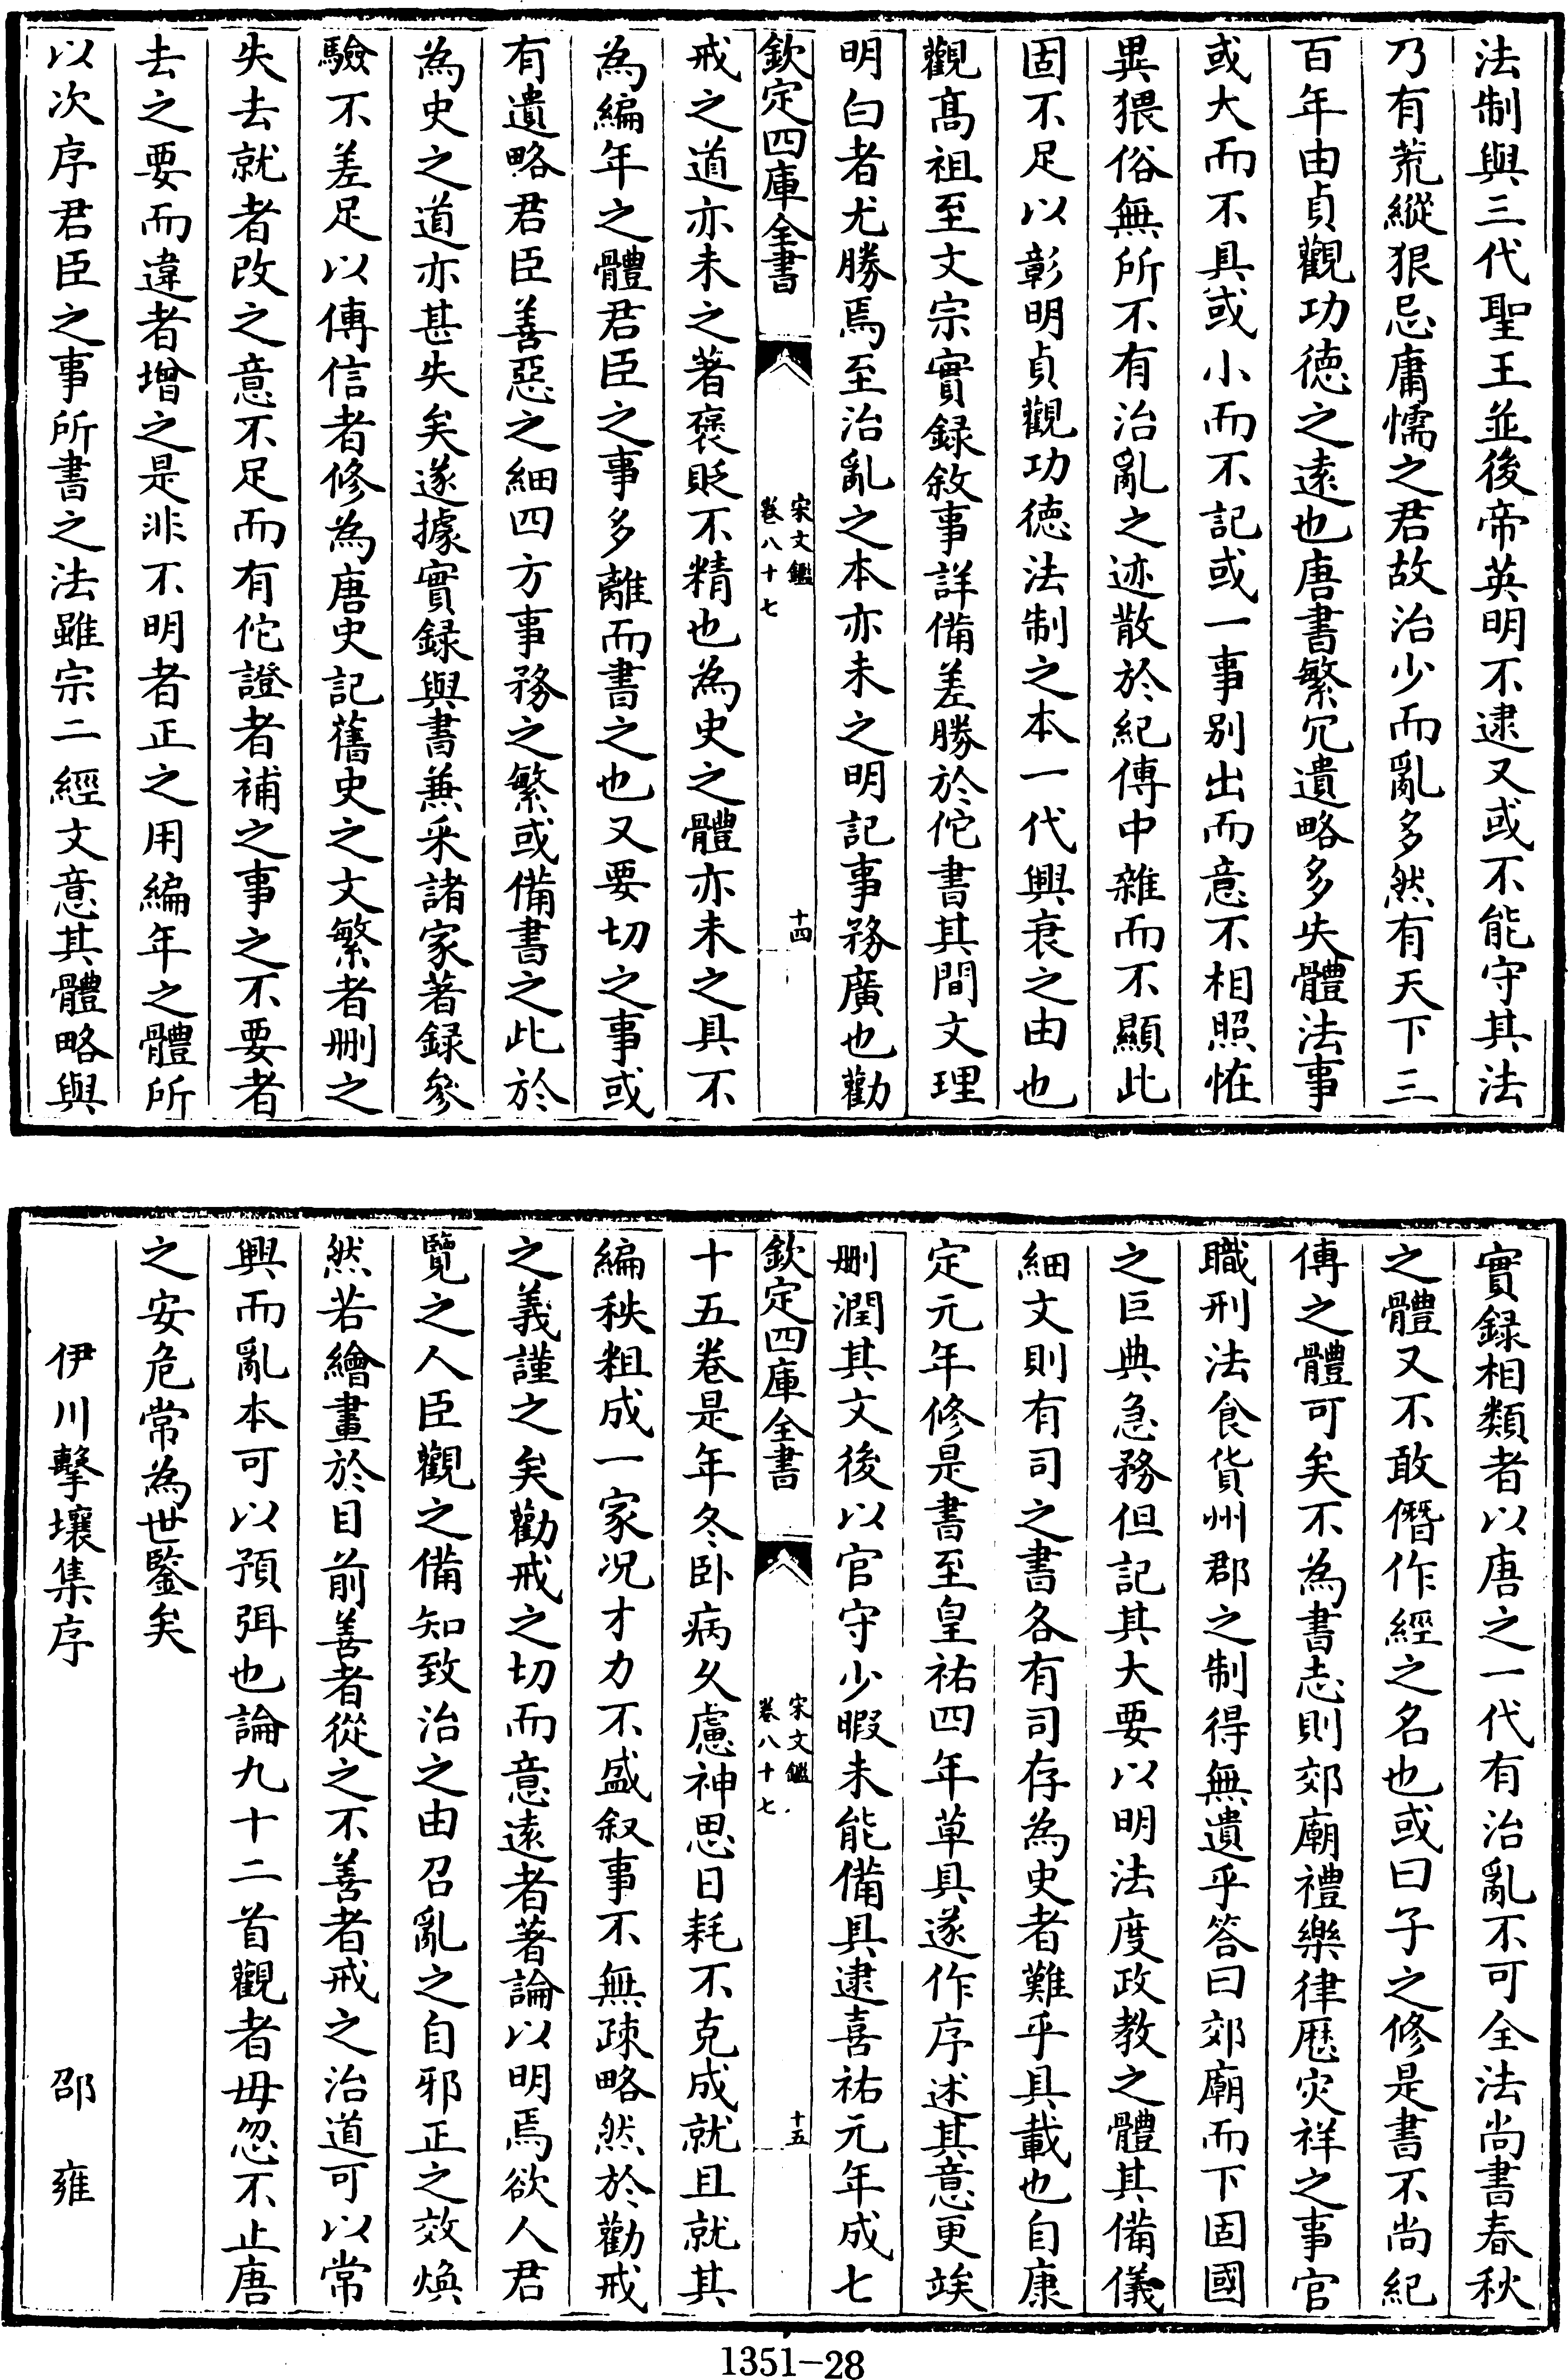 法制與三代聖王並後帝英明不逮又或不能守其法
乃有荒縱狠忌庸懦之君故治少而亂多然有天下三
百年由貞觀功德之遠也唐書繁冗遺略多失體法事
或大而不具或小而不記或一事别出而意不相照怪
異猥俗無所不有治亂之迹散於紀傳中雜而不顯此
固不足以彰明貞觀功德法制之本一代興衰之由也
觀髙祖至文宗實録敘事詳備差勝於佗書其間文理
明白者尤勝焉至治亂之本亦未之明記事務廣也勸
欽定四庫全書
宋文鑑
卷八十七
十四
戒之道亦未之著褒貶不精也為史之體亦未之具不
為編年之體君臣之事多離而書之也又要切之事或
有遺略君臣善惡之細四方事務之繁或備書之此於
為史之道亦甚失矣遂據實録與書兼采諸家著録參
驗不差足以傳信者修為唐史記舊史之文繁者刪之
失去就者改之意不足而有佗證者補之事之不要者
去之要而違者增之是非不明者正之用編年之體所
以次序君臣之事所書之法雖宗二經文意其體略與
實録相類者以唐之一代有治亂不可全法尚書春秋
之體又不敢僭作經之名也或曰子之修是書不尚紀
傳之體可矣不為書志則郊廟禮樂律厯灾祥之事官
職刑法食貨州郡之制得無遺乎答曰郊廟而下固國
之巨典急務但記其大要以明法度政教之體其備儀
細文則有司之書各有司存為史者難乎具載也自康
定元年修是書至皇祐四年草具遂作序述其意更竢
刪潤其文後以官守少暇未能備具逮喜祐元年成七
欽定四庫全書
宋文鑑
卷八十七
十五
十五卷是年冬卧病久慮神思日耗不克成就且就其
編秩粗成一家况才力不盛叙事不無疎略然於勸戒
之義謹之矣勸戒之切而意遠者著論以明焉欲人君
覽之人臣觀之備知致治之由召亂之自邪正之效煥
然若繪畫於目前善者從之不善者戒之治道可以常
興而亂本可以預弭也論九十二首觀者毋忽不止唐
之安危常為世鑒矣
伊川擊壤集序 邵雍
1351-28